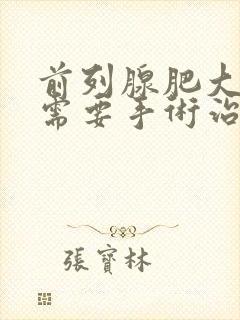 前列腺肥大
需要手術治
張寶林